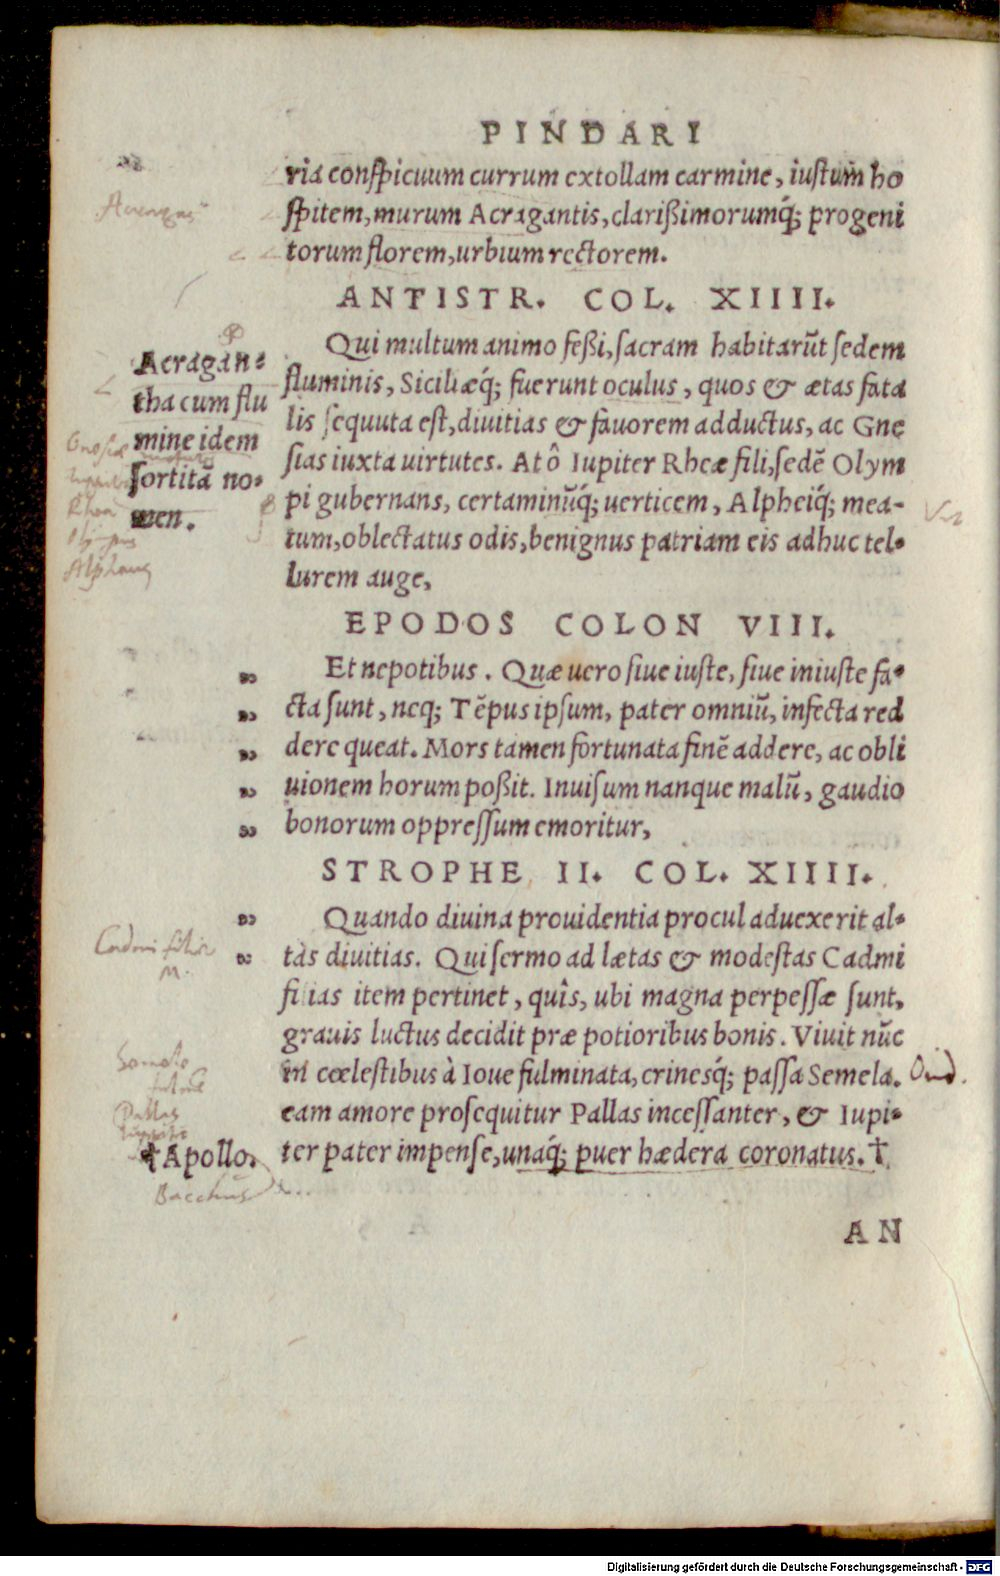 PINDARI
ria conspicuum currum extollam carmine, iustum ho
spitem, murum Acragantis, clarißimorumq́; progeni
torum florem, urbium rectorem.
ANTISTR. COL. XIIII.
Qui multum animo feßi, sacram habitarũt sedem
fluminis, Siciliæq́; fuerunt oculus, quos & ætas fata
lis sequuta est, diuitias & fauorem adductus, ac Gne
sias iuxta uirtutes. At ô Iupiter Rheæ fili, sedẽ Olym
pi gubernans, certaminũq́; uerticem, Alpheiq́; mea-
tum, oblectatus odis, benignus patriam eis adhuc tel-
lurem auge,
Acragan-
tha cum flu
mine idem
sortita no-
men.
Gnosiæ
Rhea
Olympus
Alpheus
EPODOS COLON VIII.
Et nepotibus. Quæ uero siue iuste, siue iniuste fa-
cta sunt, neq; Tẽpus ipsum, pater omniũ, infecta red
dere queat. Mors tamen fortunata finẽ addere, ac obli
uionem horum poßit. Inuisum nanque malũ, gaudio
bonorum oppressum emoritur,
STROPHE II. COL. XIIII.
Quando diuina prouidentia procul aduexerit al-
tas diuitias. Qui sermo ad lætas & modestas Cadmi
filias item pertinet, quîs, ubi magna perpessæ sunt,
grauis luctus decidit præ potioribus bonis. Viuit nũc
in cœlestibus à Ioue fulminata, crinesq́; passa Semela.
eam amore prosequitur Pallas incessanter, & Iupi-
ter pater impense, unaq́; puer hædera coronatus.†
Cadmi filiæ
Pallas
Iuppiter
†Apollo.
Bacchus
AN
Digitalisierung gefördert durch die Deutsche Forschungsgemeinschaft - DFG